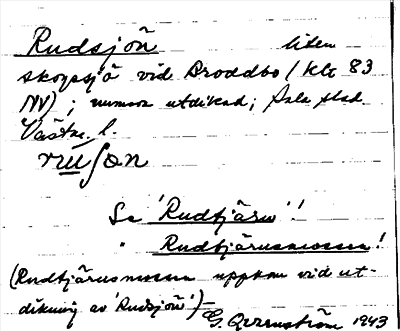 Rudsjön liten
skogssjö vid Broddbo (kbl 83
NV); numera utdikad; Sala stad
Västm. l.
Se 'Rudtjärn'!
" Rudtjärnsmossen!
(Rudtjärnsmossen uppkom vid ut-
dikning av 'Rudsjön')
G. 1943